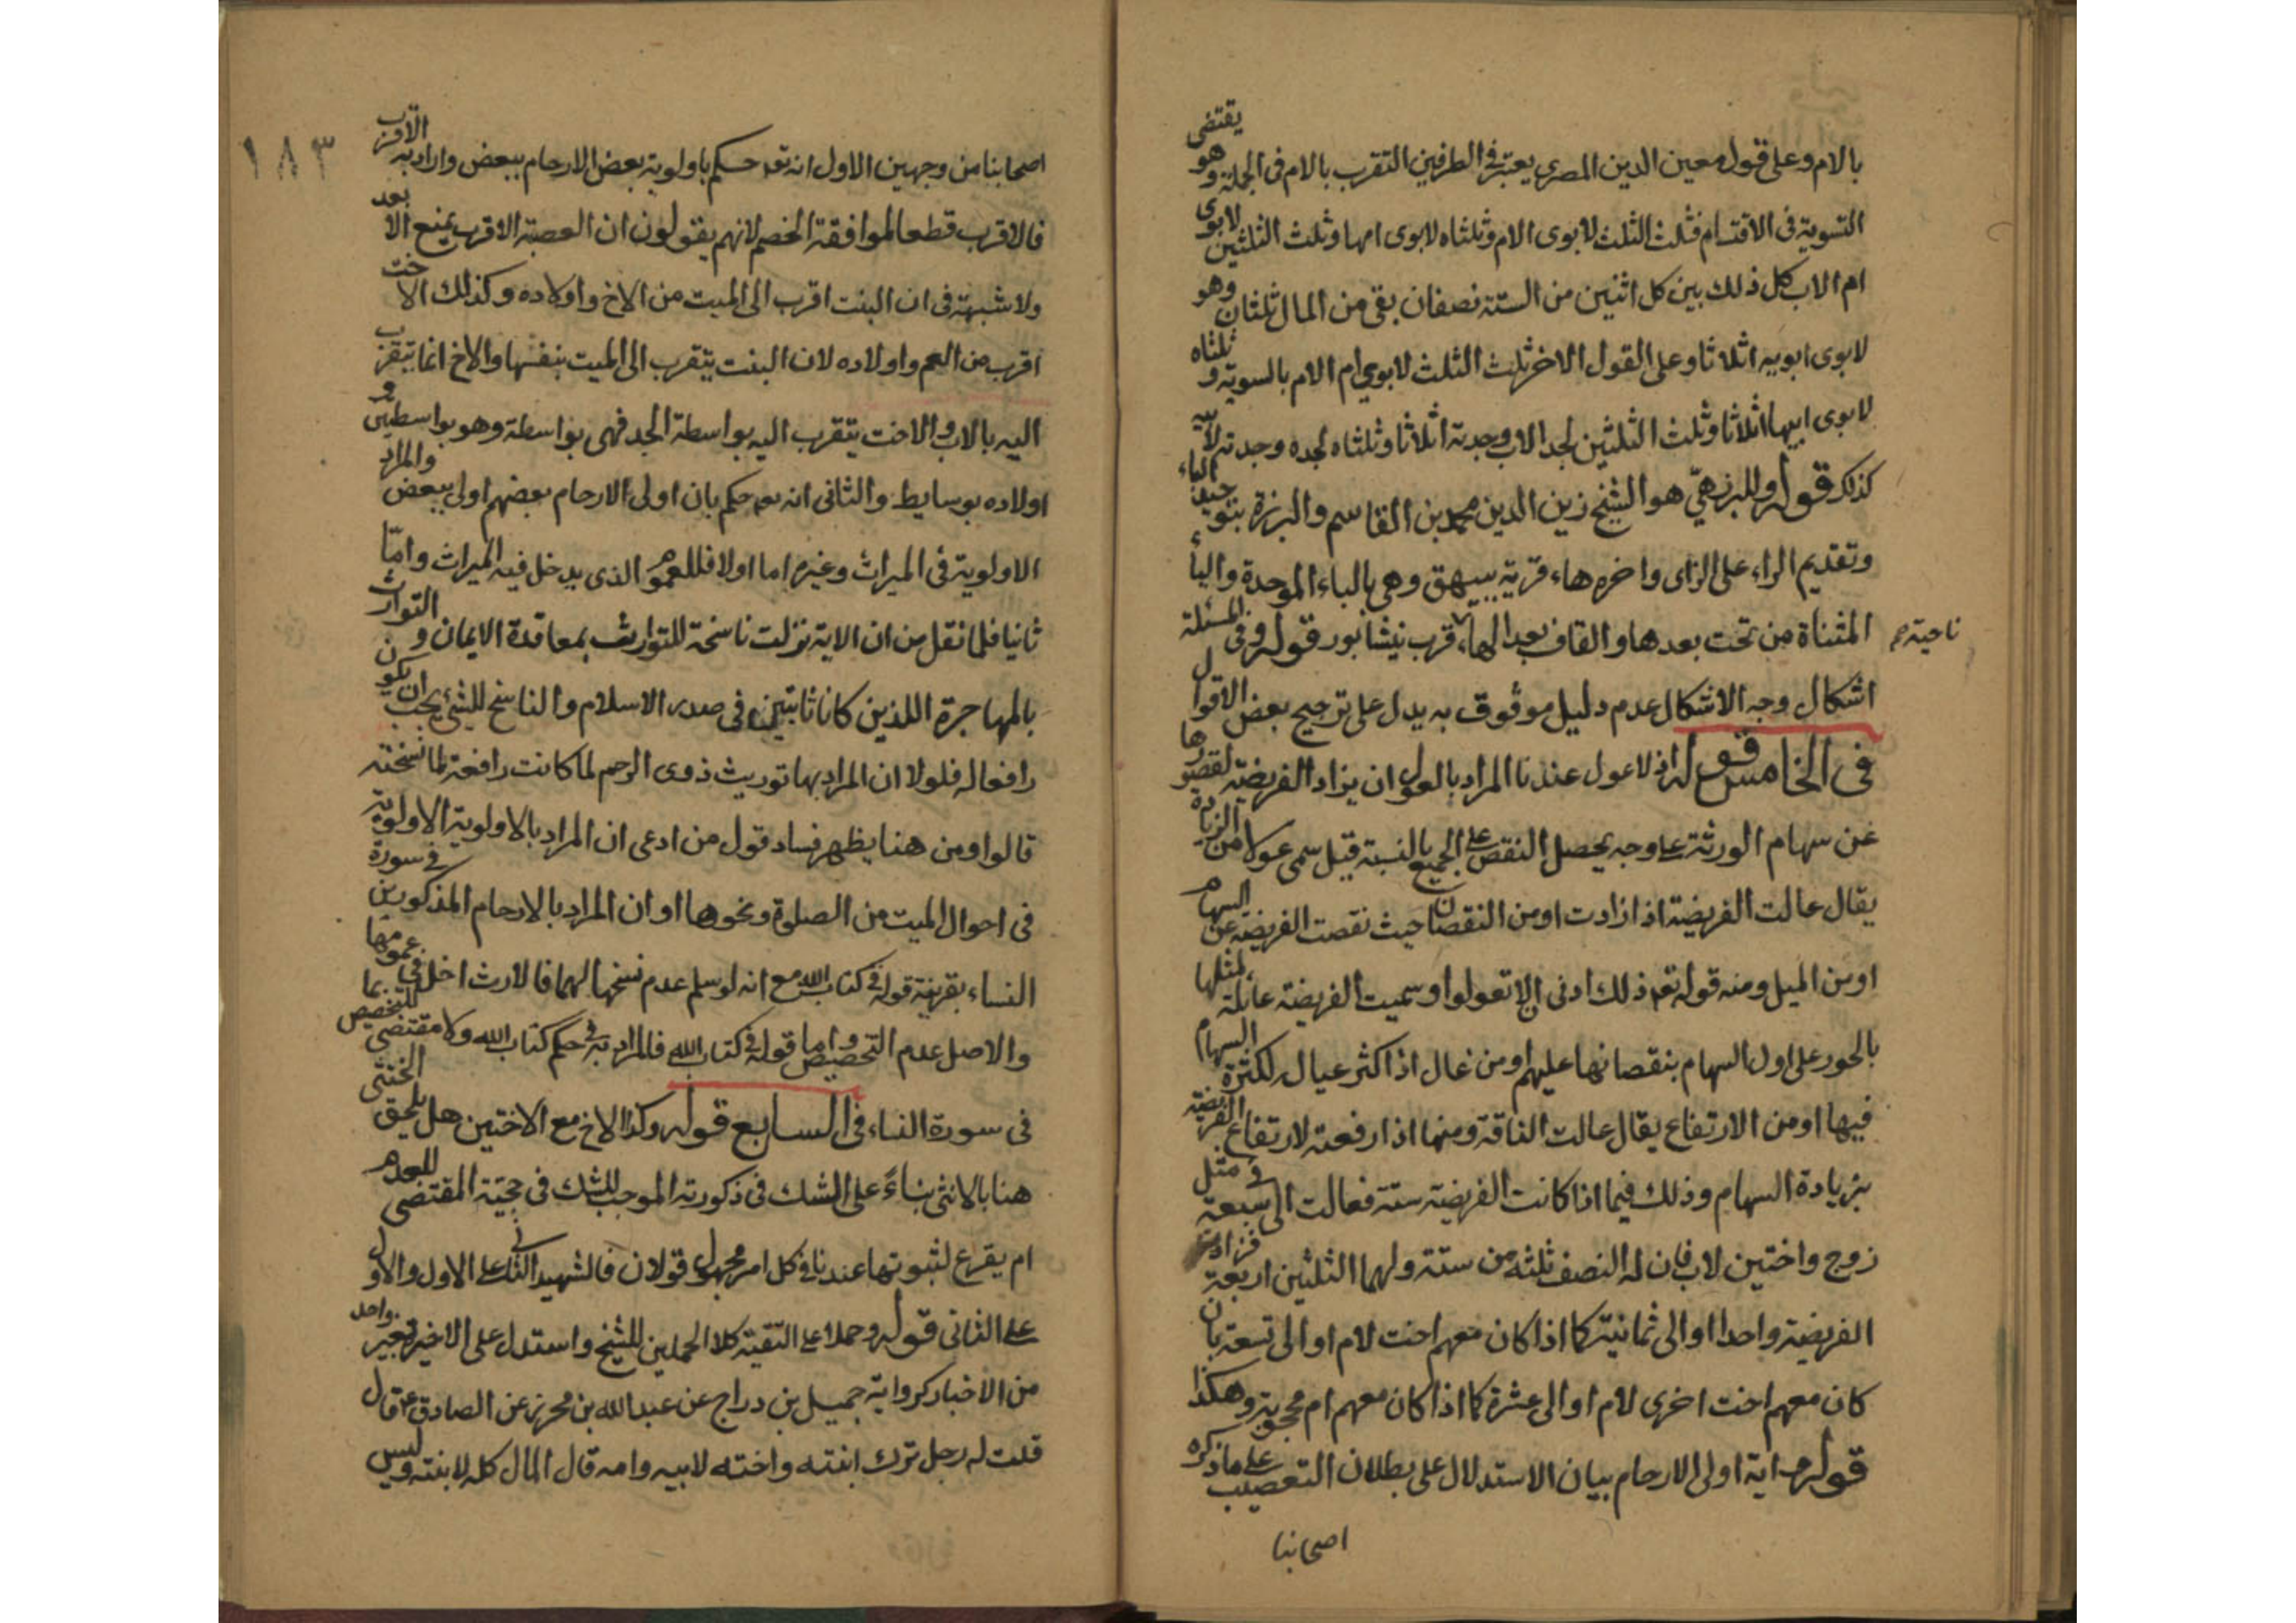 بالام وعلى قول معين الدين المصرى يعتبر فى الطرفين التقرب بالام فى الجملة وهو يقتضى
التسوية فى الاقتسام فثلث الثلث لابوى الام وثلثاه لابوى امها وثلث الثلثين لابوى
ام الاب كل ذلك بين كل اثنين من الستة نصفان بقى من المال ثلثان وهو
لابوى ابويه اثلاثا وعلى القول الاخر ثلث الثلث لابوى ام الام بالسوية و ثلثاه
لابوى ابيها اثلاثا وثلث الثلثين لجد الاب وجدته اثلاثا وثلثاه لجده وجدته لابيه
كذلك قوله وللبرزهى هو الشيخ زين الدين محمد بن القاسم والبرزة بتوحيد الباء
وتقديم الراء على الزاى واخره هاء قرية ببيهق وهى بالباء الموحدة والياء
المثناة من تحت بعدها والقاف بعد الهاء قرب نيشابور قوله وفى المسئلة
ناحية صح
اشكال وجه الاشكال عدم دليل موثوق به يدل على ترجيح بعض الاقوال
فى الخامس قوله اذ لا عول عندنا المراد بالعول ان يزاد الفريضة لقصورها
عن سهام الورثة على وجه يحصل النقص على الجميع بالنسبة قيل سمى عولا من الزيادة
يقال عالت الفريضة اذا زادت او من النقصان حيث نقصت الفريضة عن السهام
او من الميل ومنه قوله تعه ذلك ادنى الا تعولوا وسميت الفريضة عائلة لمثلها
بالجور على اولى السهام بنقصانها عليهم او من عال اذا كثر عياله لكثرة السهام
فيها او من الارتفاع يقال عالت الناقة ذنبها اذا رفعته لارتفاع الفريضة
بزيادة السهام وذلك فيما اذا كانت الفريضة ستة فعالت الى سبعة فى مثل
زوج واختين لاب فان له النصف ثلثه من ستة ولهما الثلثين اربعة فزادت
الفريضة واحدا او الى ثمانية كما اذا كان معهم اخت لام او الى تسعة بان
كان معهم اخت اخرى لام او الى عشرة كما اذا كان معهم ام محجوبة وهكذا
قوله اية اولى الارحام بيان الاستدلال على بطلان التعصيب على ما ذكره
اصحابنا
١٨٣
اصحابنا من وجهين الاول انه تعه حكم باولوية بعض الارحام ببعض واراد به الاقرب
فالاقرب قطعا لموافقة الخصم لانهم يقولون ان العصبة الاقرب يمنع الابعد
ولا شبهة فى ان البنت اقرب الى الميت من الاخ واولاده وكذلك الاخت
اقرب من العم واولاده لان البنت يتقرب الى الميت بنفسها والاخ انما يتقرب
اليه بالاب والاخت يتقرب اليه بواسطة الجد فهى بواسطة وهو بواسطتين و
اولاده بوسايط والثانى انه تعه حكم بان اولى الارحام بعضهم اولى ببعض والمراد
الاولوية فى الميراث وغيره اما اولا فللعموم الذى يدخل فيه الميراث وامّا
ثانيا فلما نقل من ان الاية نزلت ناسخة للتوارث بمعاقدة الايمان و التوارث
بالمهاجرة اللذين كانا ثابتين فى صدر الاسلام والناسخ للشئ يجب ان يكون
رافعا له فلولا ان المراد بها توريث ذوى الرحم لما كانت رافعة لما نسخته
قالوا ومن هنا يظهر فساد قول من ادعى ان المراد بالاولوية الاولوية
فى احوال الميت من الصلوة ونحوها او ان المراد بالارحام المذكورين فى سورة
النساء بقرينة قوله فى كتاب الله مع انه لو سلم عدم نسخها لهما فالارث داخل فى عمومها
والاصل عدم التخصيص واما قوله فى كتاب الله فالمراد به فى حكم كتاب الله ولا مقتضى للتخصيص بما
فى سورة النساء فى السابع قوله وكذا الاخ مع الاختين هل يلحق الخنثى
هنا بالانثى بناءً على الشك فى ذكوريته الموجب للشك فى حجبه المقتضى للعدم
ام يقرع لثبوتها عندنا فى كل امر مجهول قولان فالشهيد الثانى على الاول والاول
على الثانى قوله وحملا على التقية كلا الحملين للشيخ واستدل على الاخير بغير واحد
من الاخبار كرواية جميل بن دراج عن عبدالله بن محرز عن الصادق ع قال
قلت له رجل ترك ابنته واخته لابيه وامه قال المال كله لابنته وليس